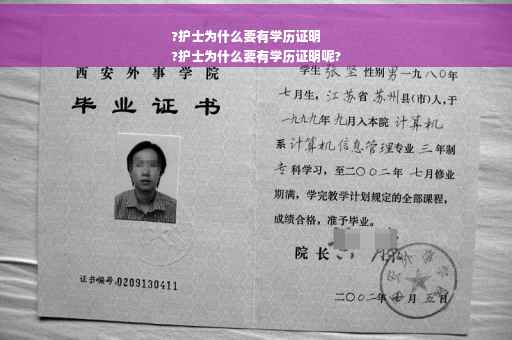 ?护士为什么要有学历证明
?护士为什么要有学历证明呢?
西安外事学院
毕业证书
证书编号:0209130411
学生张坚性别男一九八〇年
七月生,江苏省苏州县(市)人,于
一九九九年九月入本院计算机
系计算机信息管理专业三年制
专科学习,至二〇〇二年七月修业
期满,学完教学计划规定的全部课程,
成绩合格,准予毕业。
院长
二〇〇二年 月五日